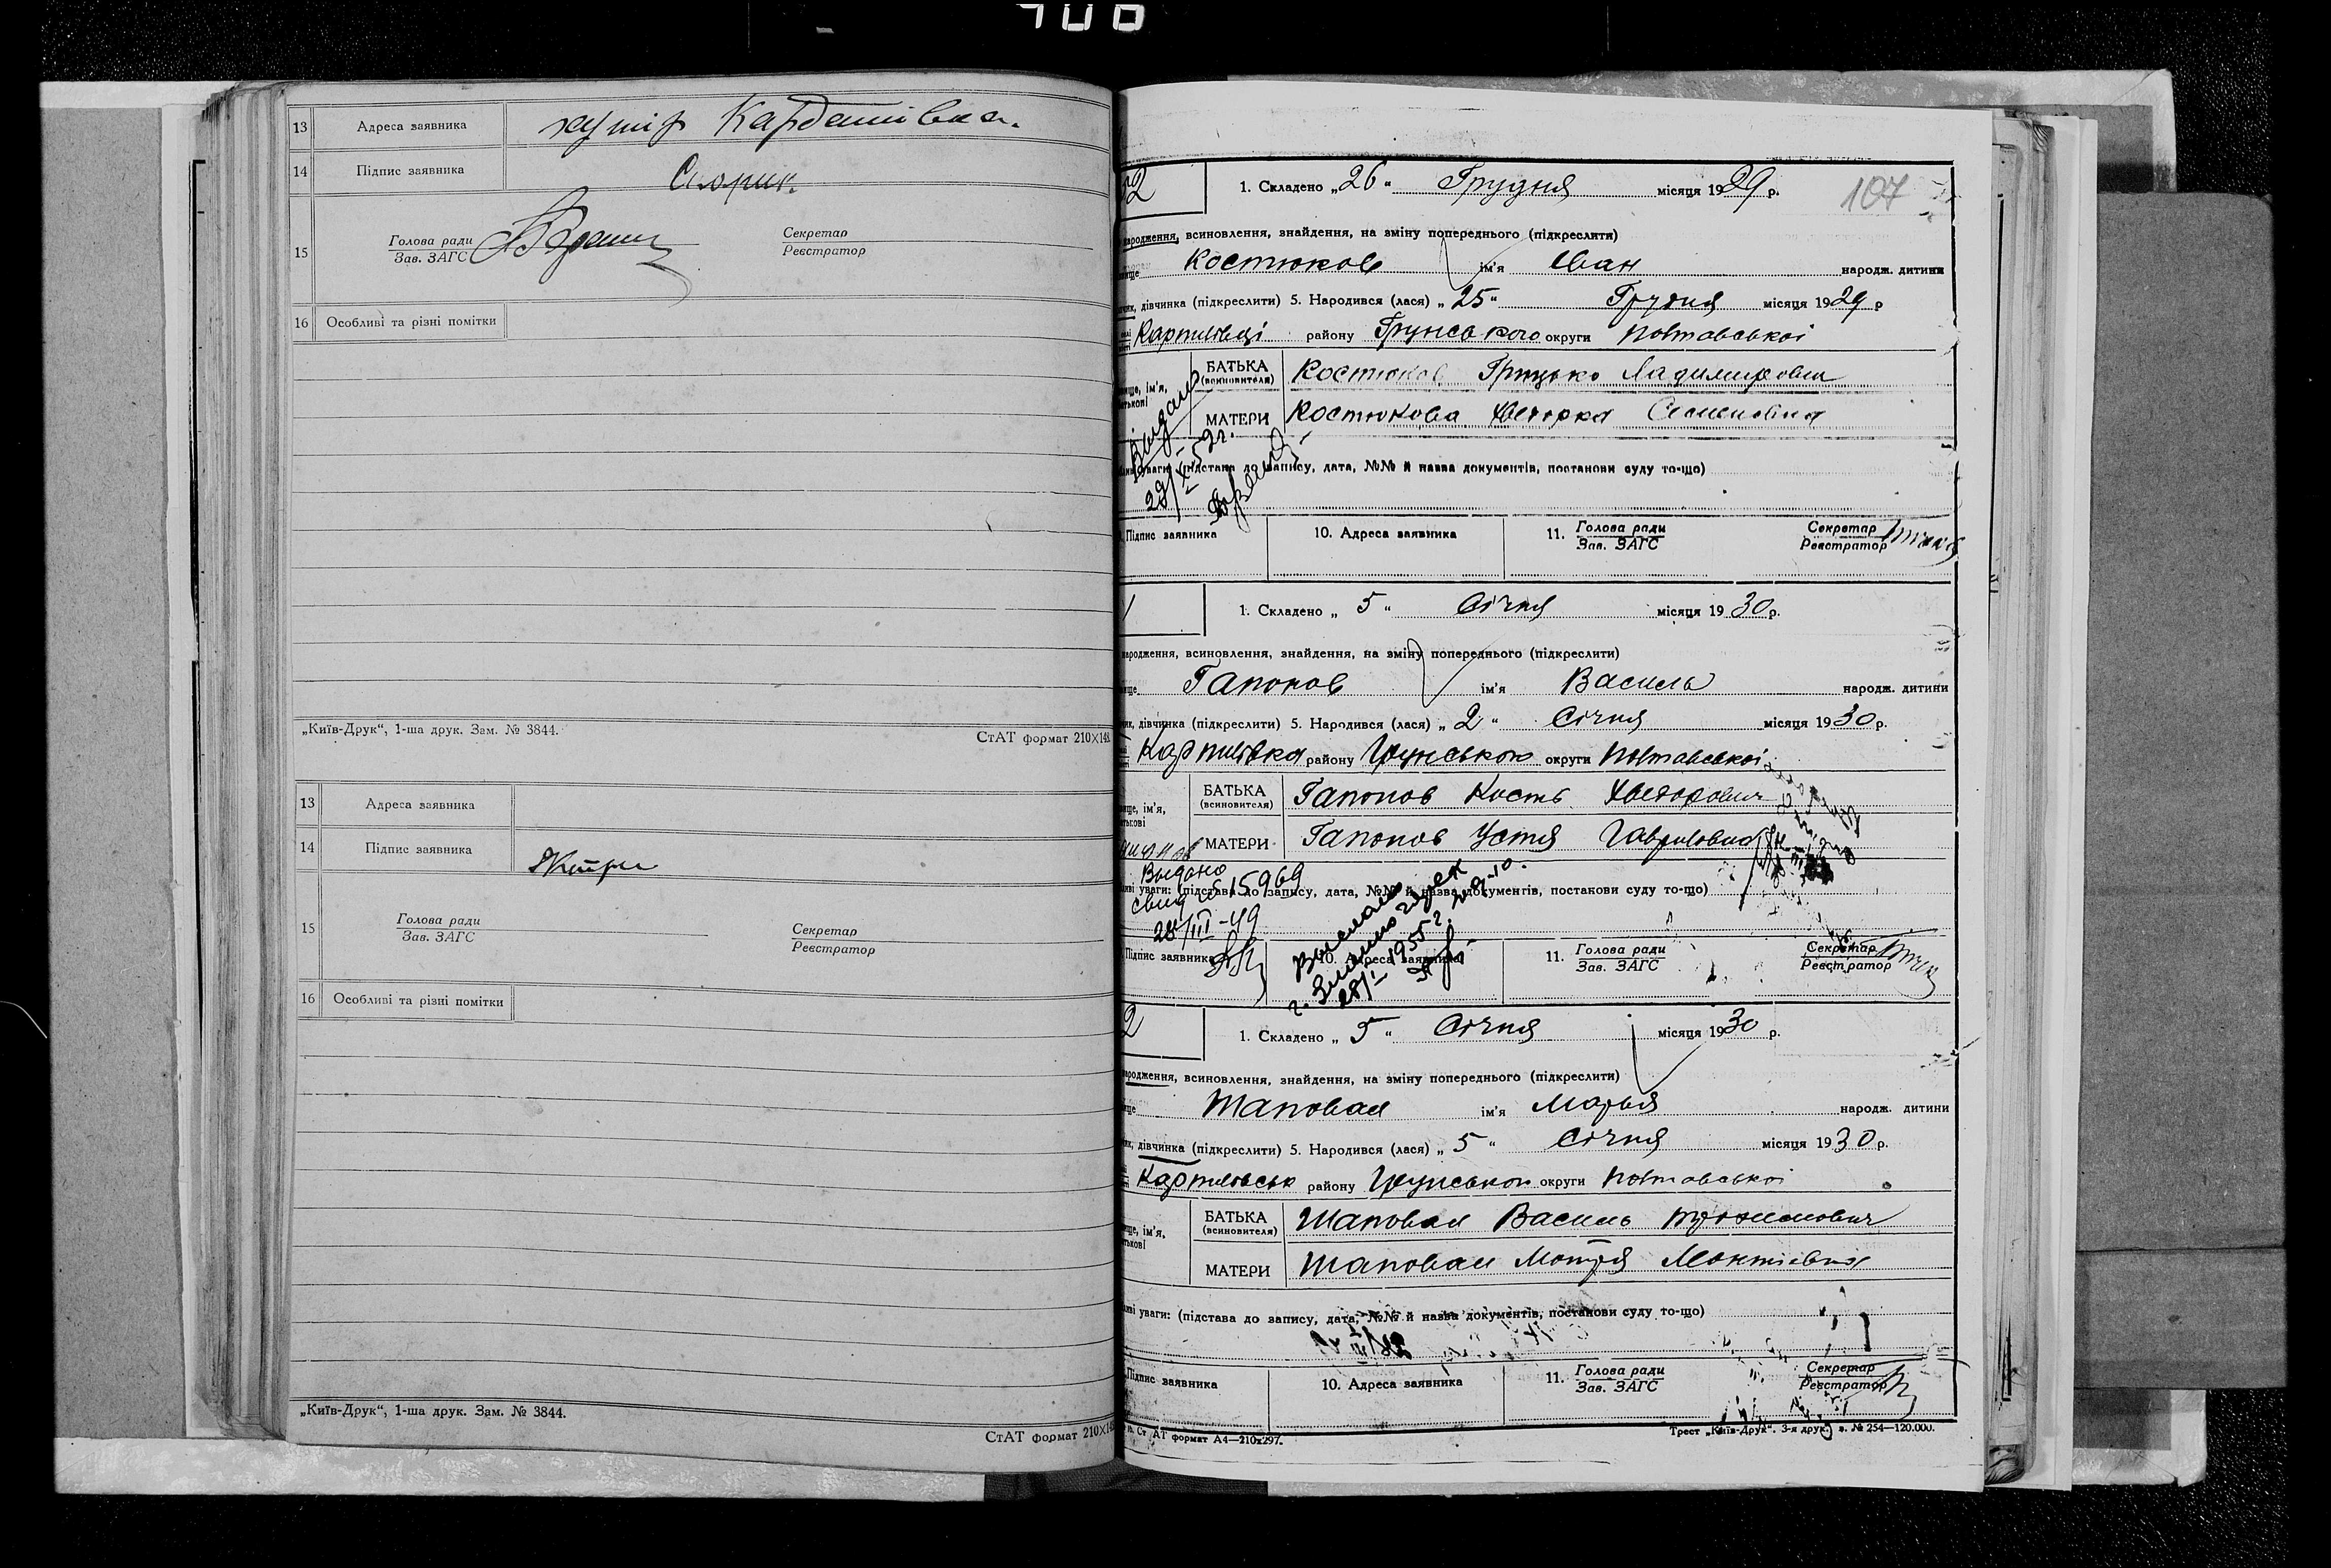 13 Адреса заявника хутір
14 Підпис заявника
15 Голова ради Секретар
Зав. ЗАГС Реєстратор
16 Особливі та різні помітки
„Київ-Друк“, 1-ша друк. Зам. № 3844.
СтАТ формат 210×148
13 Адреса заявника
14 Підпис заявника
15 Голова ради Секретар
Зав. ЗАГС Реєстратор
16 Особливі та різні помітки
„Київ-Друк“, 1-ша друк. Зам. № 3844.
СтАТ формат 210×14
107
2 1. Складено „ 26 “ Грудня місяця 1929 р.
народження, всиновлення, знайдення, на зміну попереднього (підкреслити)
Костюков ім'я Іван народж. дитини
дівчинка (підкреслити) 5. Народився (лася) „ 25 “ Грудня місяця 1929 р
Карпилівці району Грунського округи Полтавської
ім'я, БАТЬКА (всиновителя) Костюков Грицько
МАТЕРИ Костюкова Хведорка Семеновна
Выдано
29/X-52г.
уваги: (підстава до запису, дата, №№ й назва документів, постанови суду то-що)
Підпис заявника 10. Адреса заявника 11. Голова ради Секретар
Зав. ЗАГС Реєстратор
1 1. Складено „ 5 “ Січня місяця 1930 р.
народження, всиновлення, знайдення, на зміну попереднього (підкреслити)
Гапонов ім'я Василь народж. дитини
дівчинка (підкреслити) 5. Народився (лася) „ 2 “ Січня місяця 1930 р.
Карпилівка району Грунського округи Полтавської
ім'я, БАТЬКА (всиновителя) Гапонов Кость Хведорович
МАТЕРИ Гапонов Устя Гавриловна
Выдано
уваги: (підстава до запису, дата, №№ й назва документів, постанови суду то-що)
свид 15969
28/III-49
28/I 1955 г.
Підпис заявника 10. Адреса заявника 11. Голова ради Секретар
Зав. ЗАГС Реєстратор
2 1. Складено „ 5 “ Січня місяця 1930 р.
народження, всиновлення, знайдення, на зміну попереднього (підкреслити)
Шаповал ім'я Марья народж. дитини
дівчинка (підкреслити) 5. Народився (лася) „ 5 “ Січня місяця 1930 р.
району Грунського округи Полтавської
ім'я, БАТЬКА (всиновителя) Шаповал Василь
МАТЕРИ Шаповал Мотря
уваги: (підстава до запису, дата, №№ й назва документів, постанови суду то-що)
Підпис заявника 10. Адреса заявника 11. Голова ради Секретар
Зав. ЗАГС Реєстратор
Ст АТ формат А4—210х297.
Трест „Київ-Друк“. 3-я друк. з. № 254—120.000.